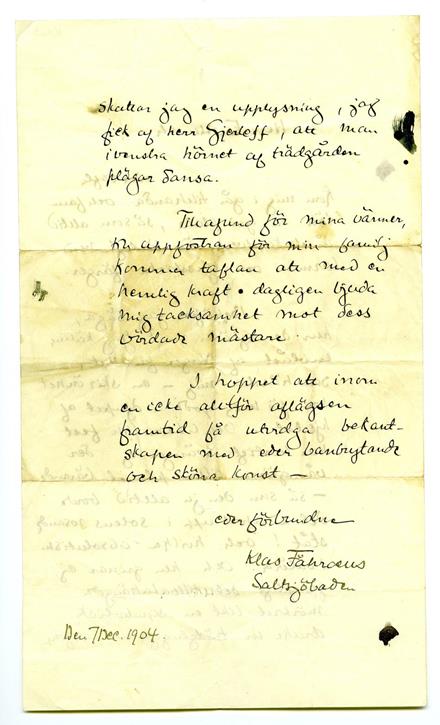 skattar jag en upplysning, jag
fick af herr Gjerloff, att man
i venstra hörnet af trädgården
plägar dansa.
Till afund för mina vänner,
till uppfostran för min familj
kommer taflan att med en
hemlig kraft dagligen bjuda
mig tacksamhet mot dess
vördade mästare.
I hoppet att inom
en icke allt för aflägsen
framtid få utvidga bekant-
skapen med eder banbrytande
och sköna konst —
eder förbundne
Klas Fåhraeus
Saltsjöbaden
Den 7 Dec. 1904.